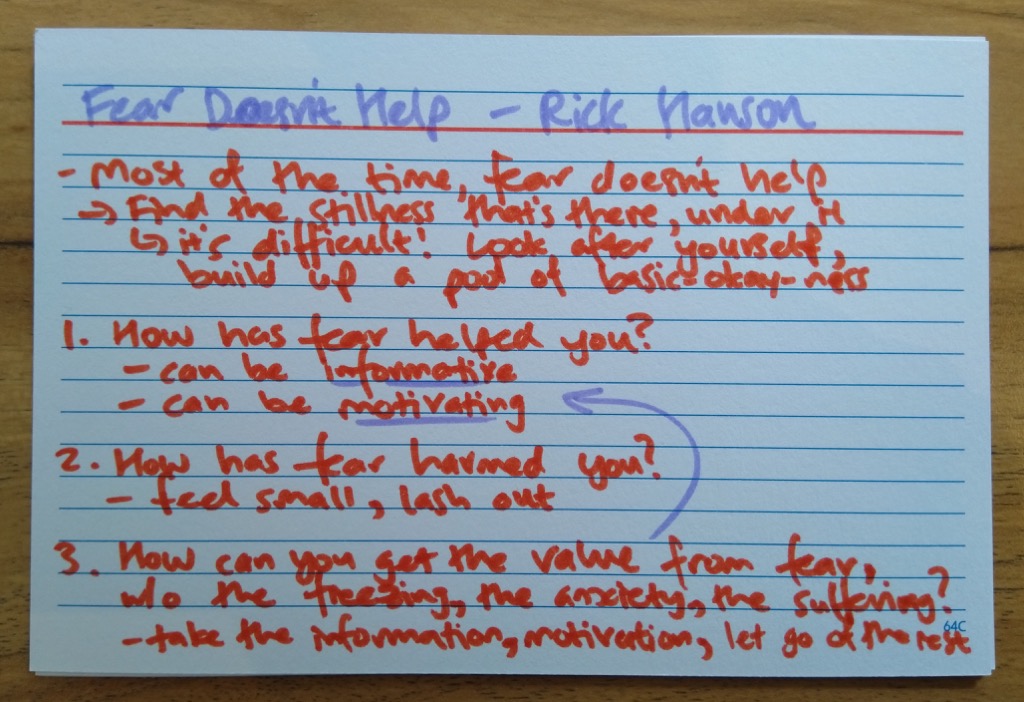 Fear Doesn't Help - Rick Hanson
- Most of the time, fear doesn't help
→ Find the stillness that's there, under it
↳ it's difficult! Look after yourself,
build up a pool of basic-okay-ness
1. How has fear helped you?
- can be informative
- can be motivating
2. How has fear harmed you?
- feel small, lash out
3. How can you get the value from fear,
w/o the freezing, the anxiety, the suffering?
- take the information, motivation, let go of the rest
64C